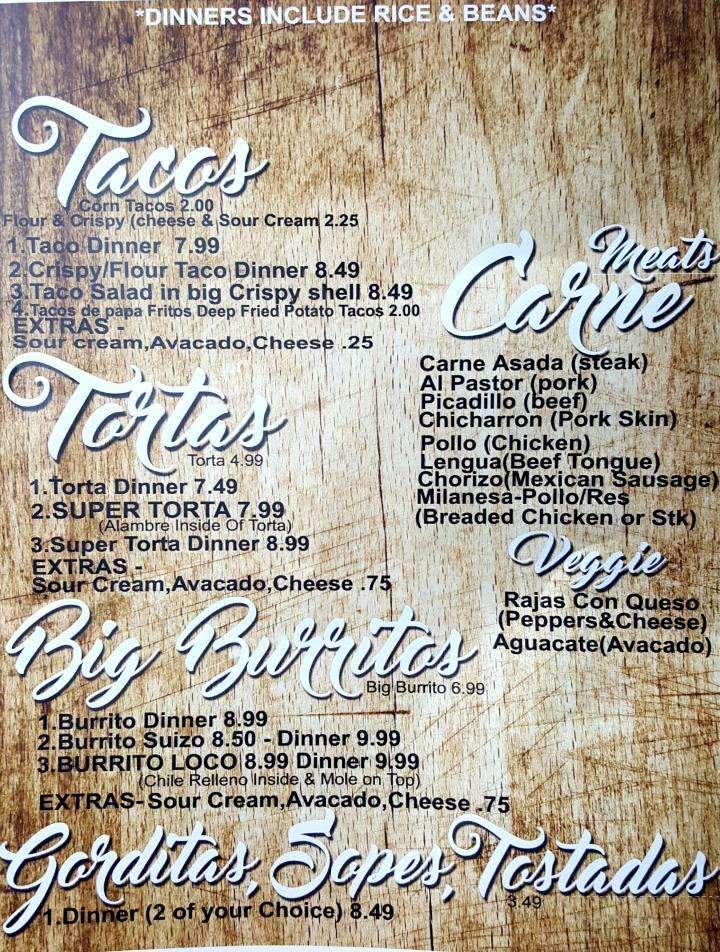 *DINNERS INCLUDE RICE & BEANS*
Tacos
Corn Tacos 2.00
Flour & Crispy (cheese & Sour Cream 2.25
1.Taco Dinner 7.99
2.Crispy/Flour Taco Dinner 8.49
3.Taco Salad in big Crispy shell 8.49
4.Tacos de papa Fritos Deep Fried Potato Tacos 2.00
EXTRAS -
Sour cream,Avacado,Cheese .25
Tortas
Torta 4.99
1.Torta Dinner 7.49
2.SUPER TORTA 7.99
(Alambre Inside Of Torta)
3.Super Torta Dinner 8.99
EXTRAS -
Sour Cream,Avacado,Cheese .75
Big Burritos
Big Burrito 6.99
1.Burrito Dinner 8.99
2.Burrito Suizo 8.50 - Dinner 9.99
3.BURRITO LOCO 8.99 Dinner 9.99
(Chile Relleno Inside & Mole on Top)
EXTRAS- Sour Cream,Avacado,Cheese .75
Meats
Carne
Carne Asada (steak)
Al Pastor (pork)
Picadillo (beef)
Chicharron (Pork Skin)
Pollo (Chicken)
Lengua(Beef Tongue)
Chorizo(Mexican Sausage)
Milanesa-Pollo/Res
(Breaded Chicken or Stk)
Veggie
Rajas Con Queso
(Peppers&Cheese)
Aguacate(Avacado)
Gorditas, Sopes, Tostadas
3.49
1.Dinner (2 of your Choice) 8.49